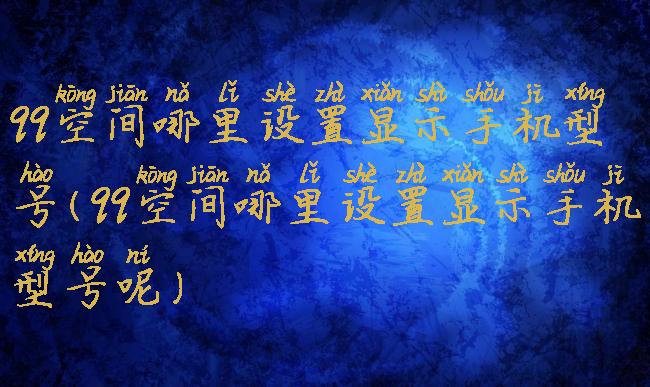 kōng jiān nǎ lǐ shè zhì xiǎn shì shǒu jī xíng
99空间哪里设置显示手机型
hào kōng jiān nǎ lǐ shè zhì xiǎn shì shǒu jī
号(99空间哪里设置显示手机
xíng hào ní
型号呢)